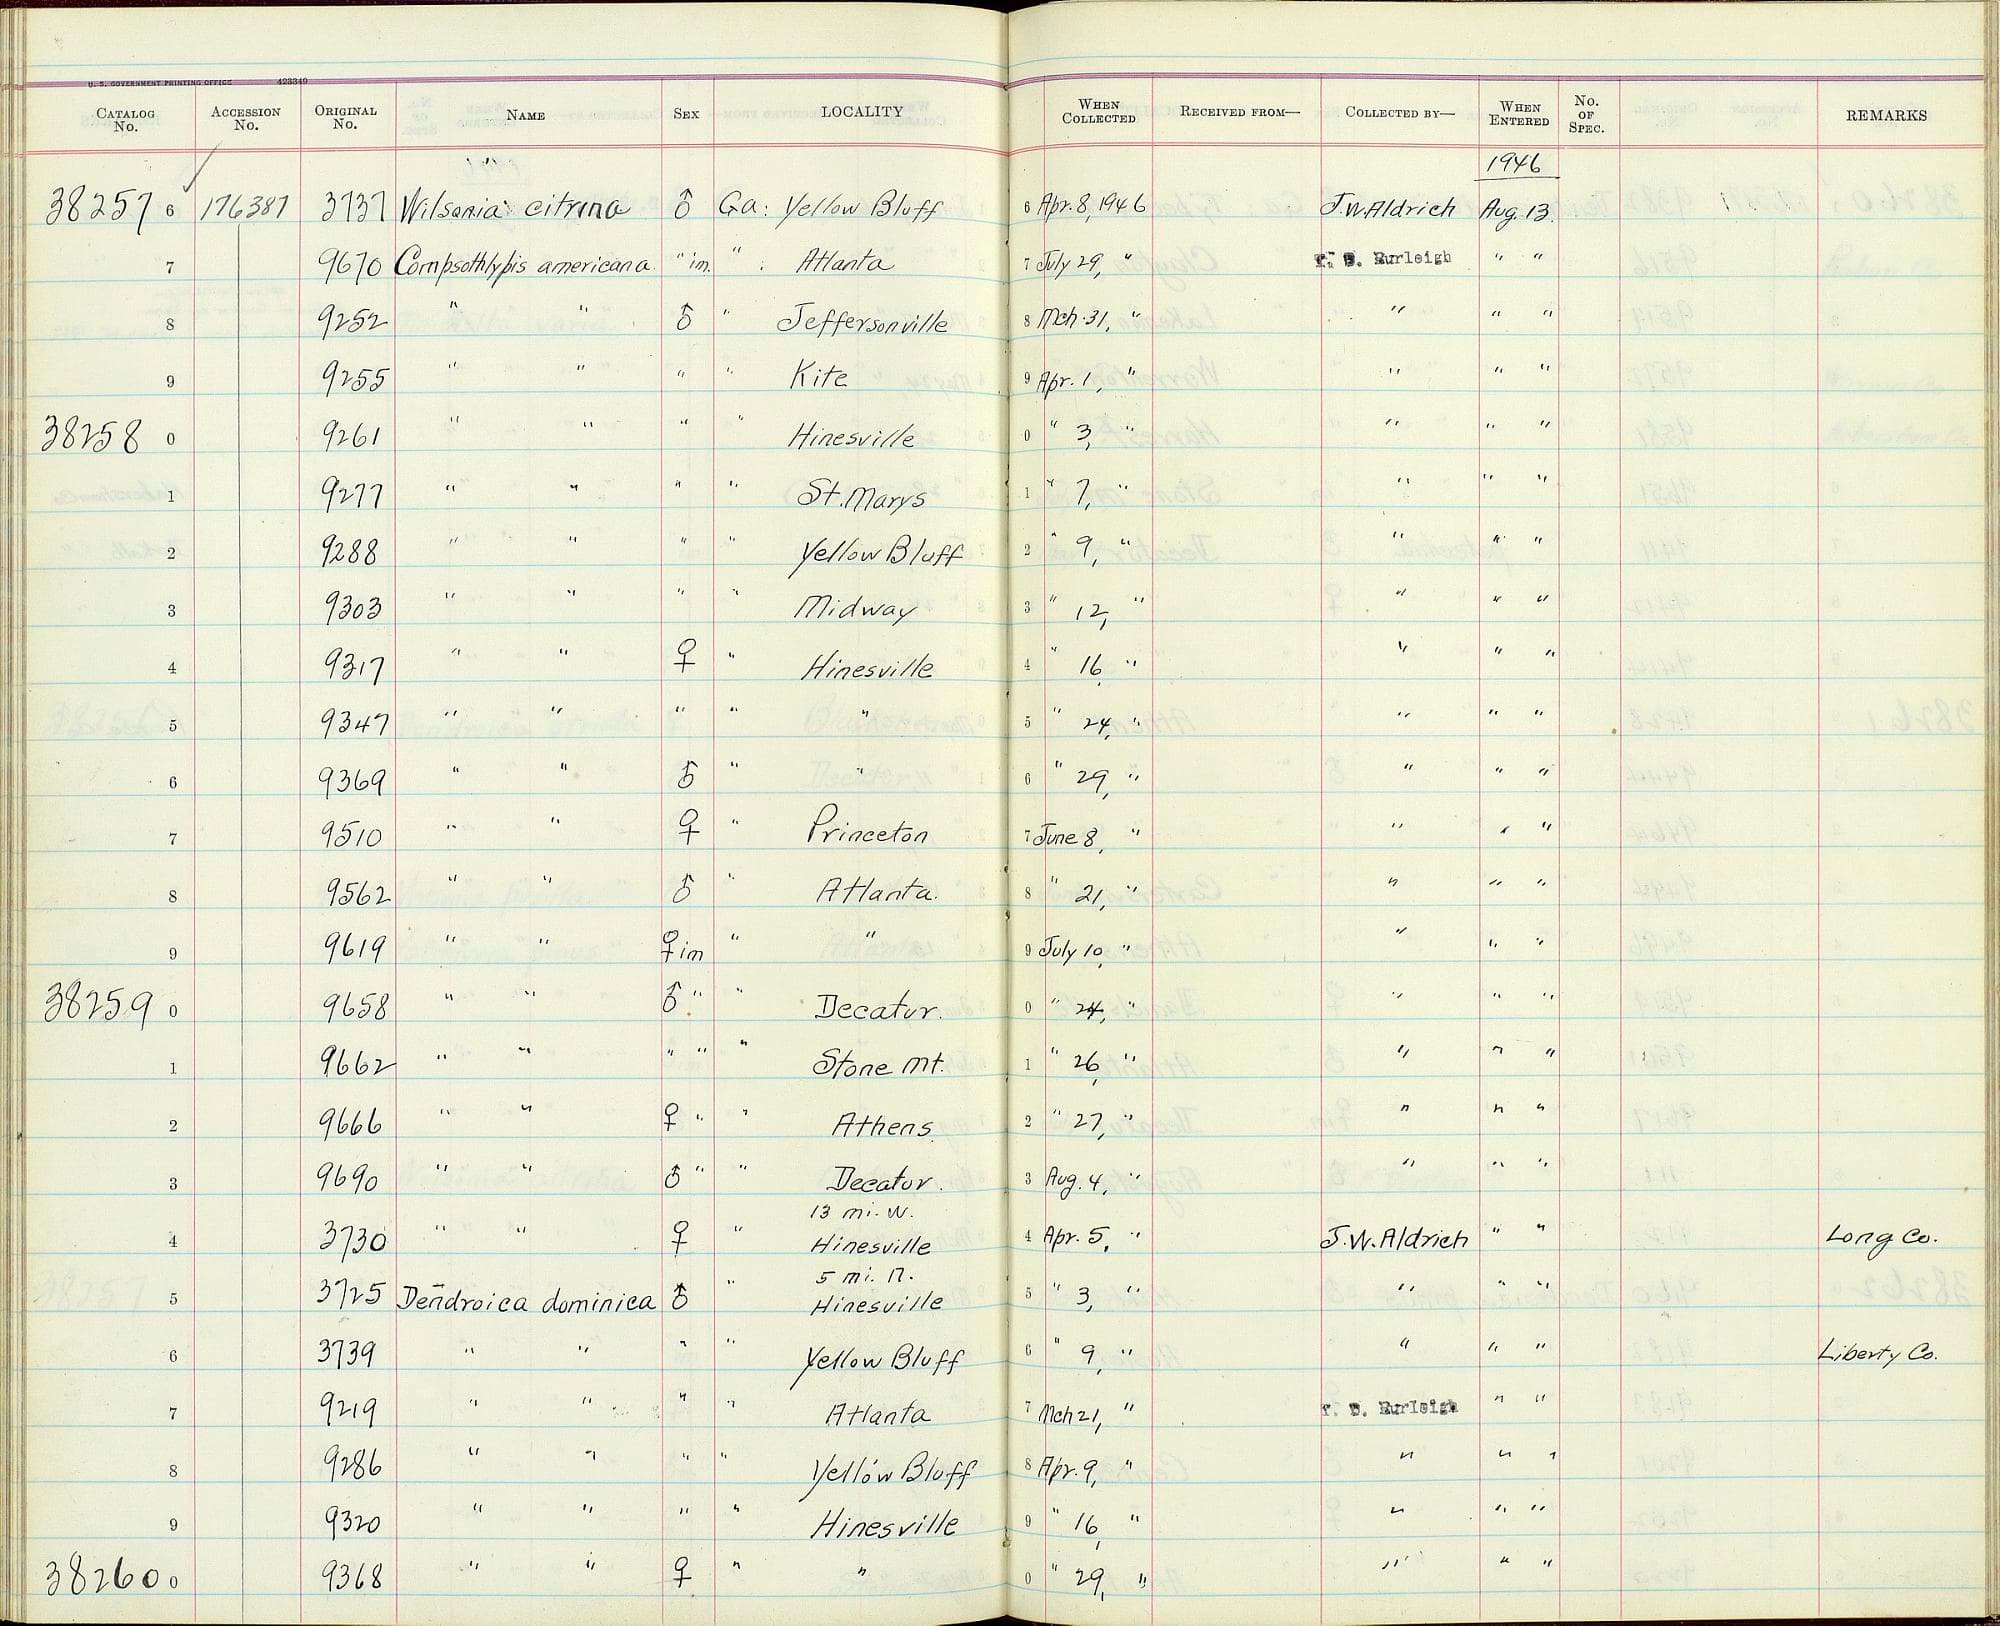 U. S. GOVERNMENT PRINTING OFFICE 423349
CATALOG No. ACCESSION No. ORIGINAL No. NAME SEX LOCALITY WHEN COLLECTED RECEIVED FROM— COLLECTED BY— WHEN ENTERED No. OF SPEC. REMARKS
1946
38257 6 176387 3737 Wilsonia citrina ♂ Ga: Yellow Bluff 6 Apr. 8, 1946 J.W. Aldrich Aug. 13.
7 9670 Compsothlypis americana " im. " Atlanta 7 July 29, " T. D. Burleigh " "
8 9252 " " ♂ " Jeffersonville 8 Mch. 31, " " " "
9 9255 " " " " Kite 9 Apr. 1, " " " "
38258 0 9261 " " " " Hinesville 0 " 3, " " " "
1 9277 " " " " St. Marys 1 " 7, " " " "
2 9288 " " " " Yellow Bluff 2 " 9, " " " "
3 9303 " " " " Midway 3 " 12, " " " "
4 9317 " " ♀ " Hinesville 4 " 16, " " " "
5 9347 " " " " " 5 " 24, " " " "
6 9369 " " ♂ " " 6 " 29, " " " "
7 9510 " " ♀ " Princeton 7 June 8, " " " "
8 9562 " " ♂ " Atlanta. 8 " 21, " " " "
9 9619 " " ♀ im " " 9 July 10, " " " "
38259 0 9658 " " ♂ " " Decatur. 0 " 24, " " " "
1 9662 " " " " " Stone Mt. 1 " 26, " " " "
2 9666 " " ♀ " " Athens 2 " 27, " " " "
3 9690 " " ♂ " " Decatur. 3 Aug. 4, " " " "
13 mi. W.
4 3730 " " ♀ " Hinesville 4 Apr. 5, " J.W. Aldrich " " Long Co.
5 mi. N.
5 3725 Dendroica dominica ♂ " Hinesville 5 " 3, " " " "
6 3739 " " " " Yellow Bluff 6 " 9, " " " " Liberty Co.
7 9219 " " " " Atlanta 7 Mch 21, " T. D. Burleigh " "
8 9286 " " " " Yellow Bluff 8 Apr. 9, " " " "
9 9320 " " " " Hinesville 9 " 16, " " " "
38260 0 9368 " " ♀ " " 0 " 29, " " " "